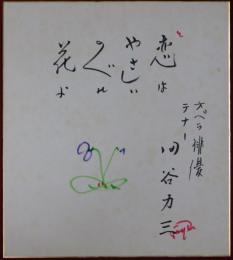 恋は
やさしい
のべの
花よ
オペラ俳優
テナー
田谷力三